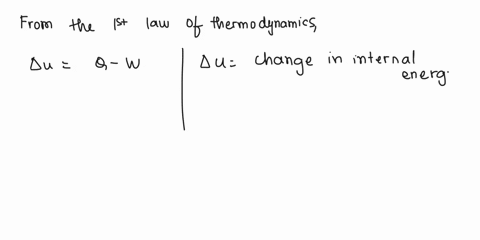 From the 1st law of thermodynamics,
Δu = Q - W
Δu = change in internal
energ